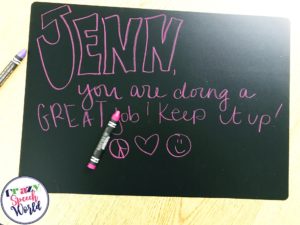 JENN,
you are doing a
GREAT job! Keep it up!
Crazy
Speech
World